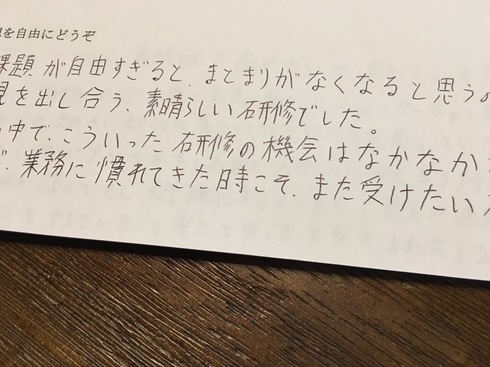 を自由にどうぞ
課題が自由すぎると、まとまりがなくなると思うの
見を出し合う、素晴らしい研修でした。
中で、こういった研修の機会はなかなか
業務に慣れてきた時こそ、また受けたい